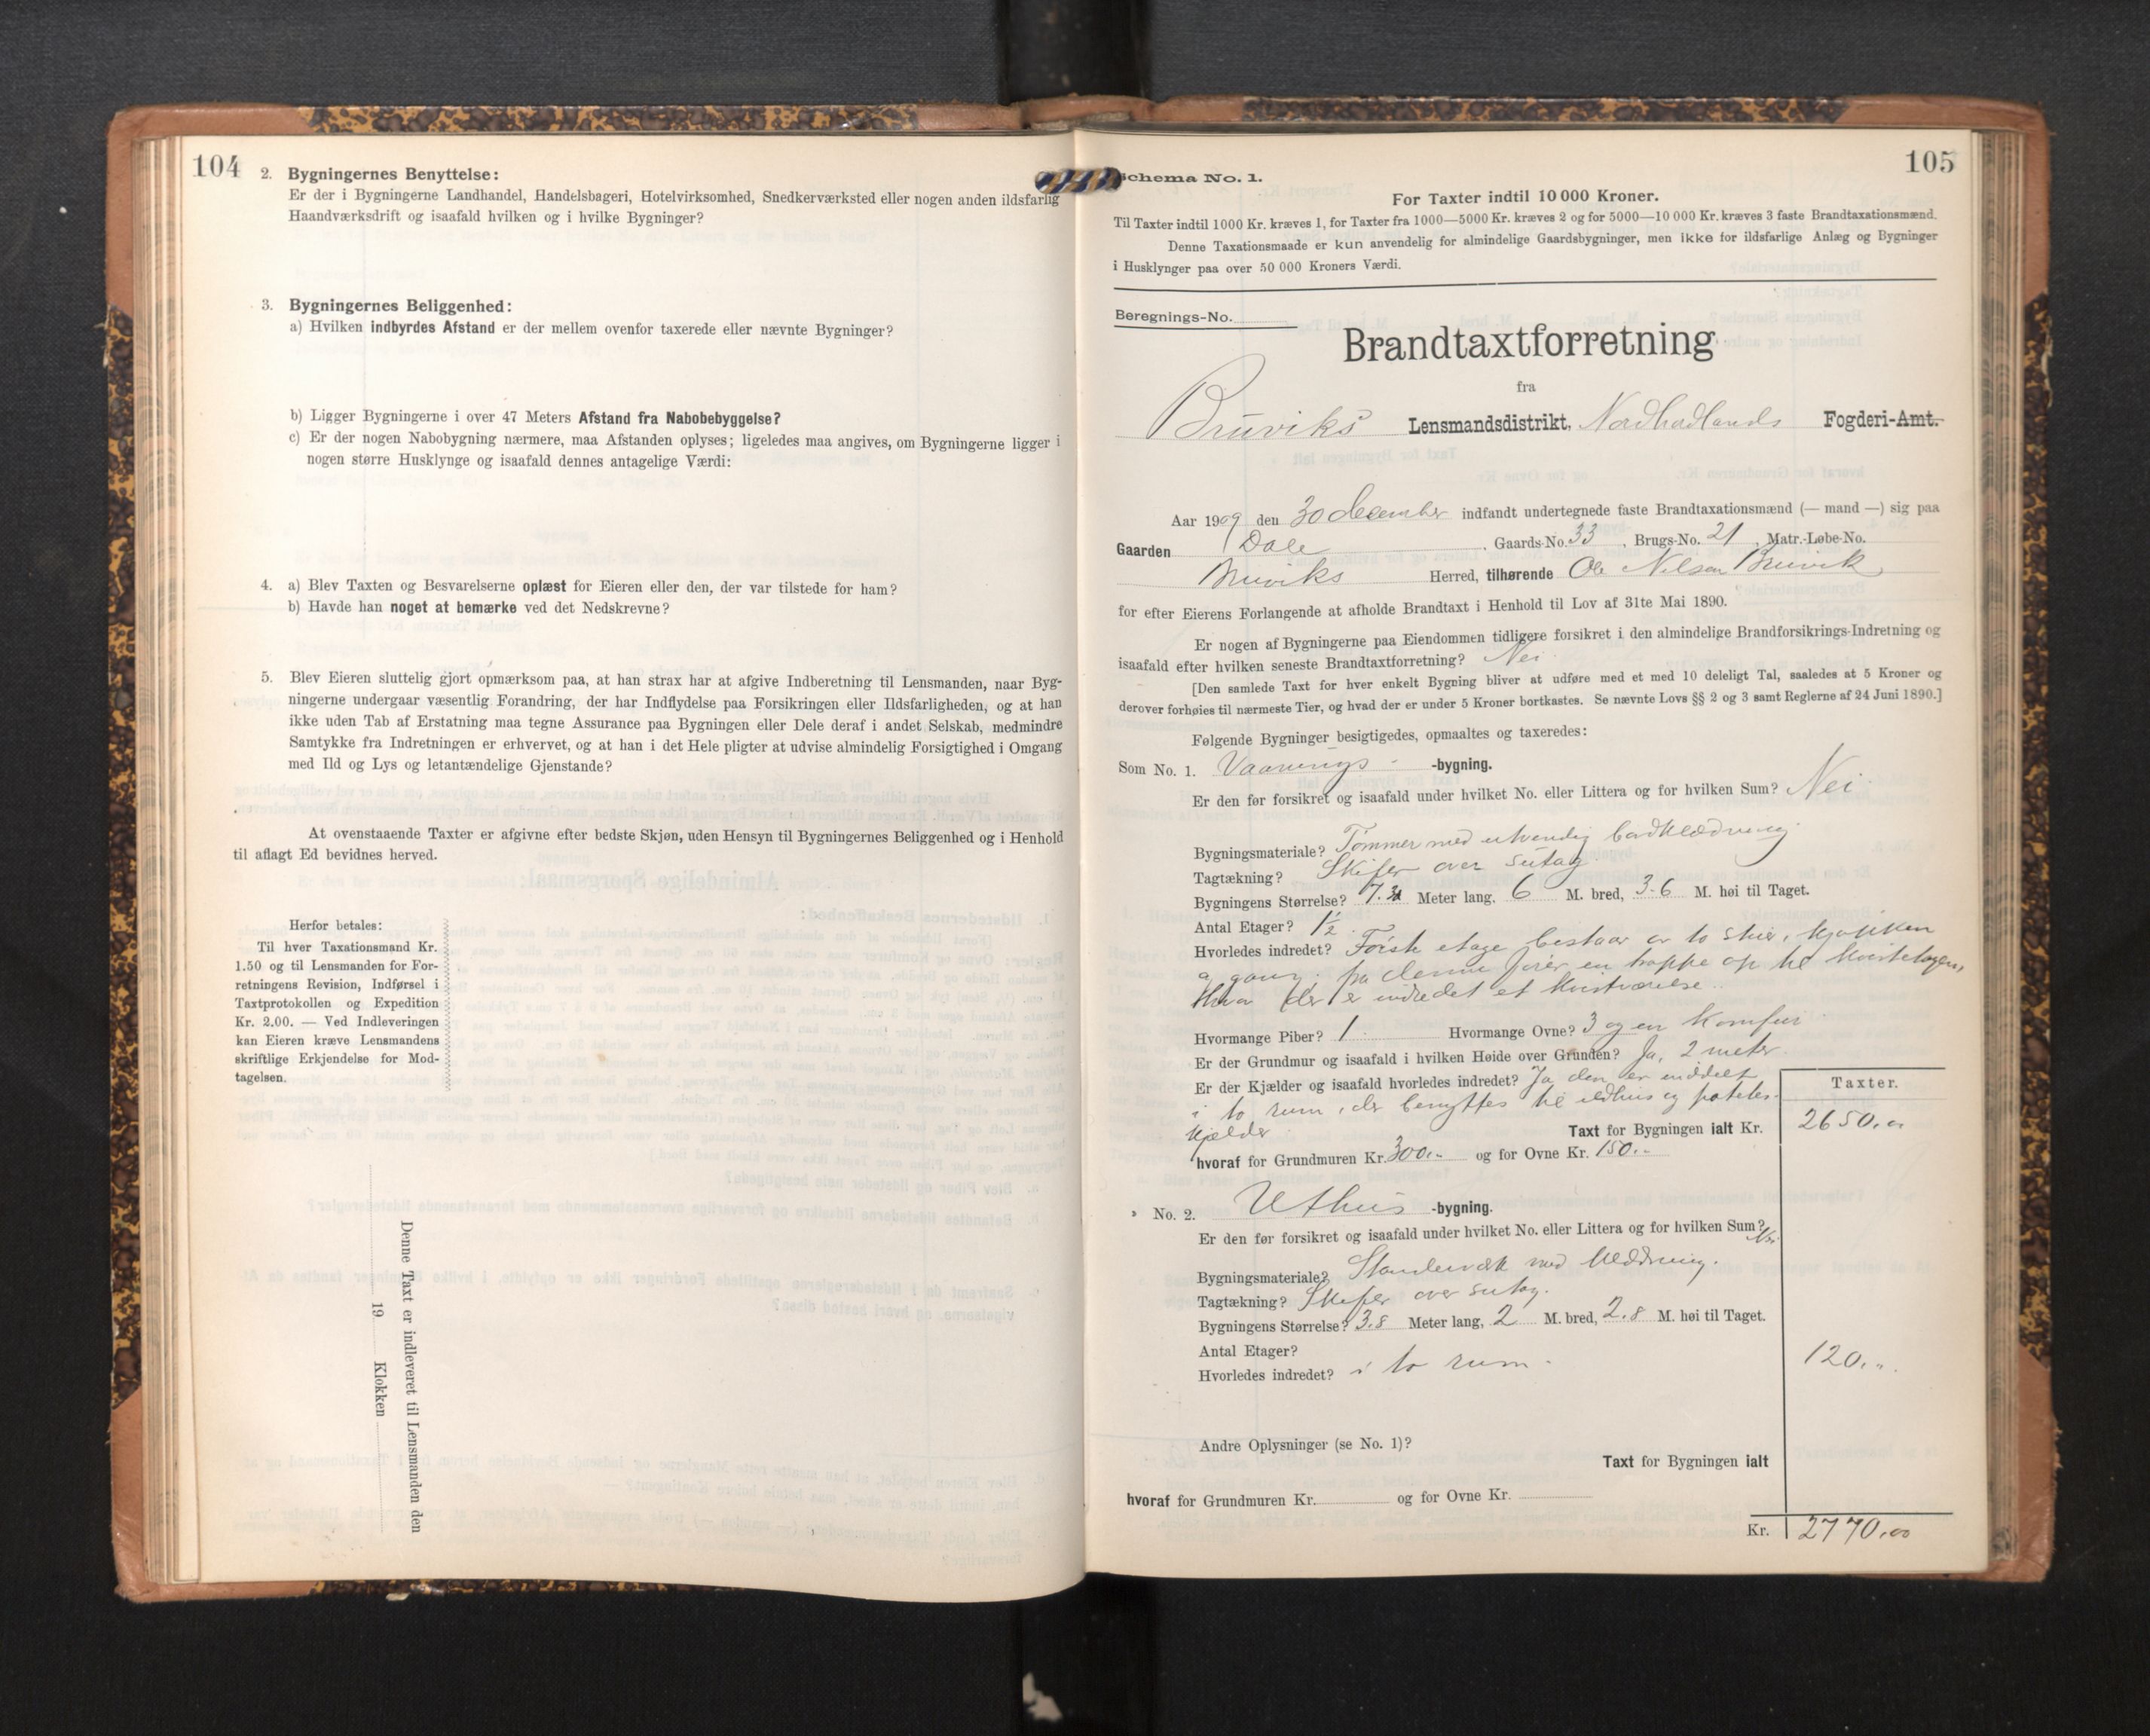 104
2. Bygningernes Benyttelse:
Er der i Bygningerne Landhandel, Handelsbageri, Hotelvirksomhed, Snedkerværksted eller nogen anden ildsfarlig
Haandværksdrift og isaafald hvilken og i hvilke Bygninger?
3. Bygningernes Beliggenhed:
a) Hvilken indbyrdes Afstand er der mellem ovenfor taxerede eller nævnte Bygninger?
b) Ligger Bygningerne i over 47 Meters Afstand fra Nabobebyggelse?
c) Er der nogen Nabobygning nærmere, maa Afstanden oplyses; ligeledes maa angives, om Bygningerne ligger i
nogen større Husklynge og isaafald dennes antagelige Værdi:
4. a) Blev Taxten og Besvarelserne oplæst for Eieren eller den, der var tilstede for ham?
b) Havde han noget at bemærke ved det Nedskrevne?
5. Blev Eieren sluttelig gjort opmærksom paa, at han strax har at afgive Indberetning til Lensmanden, naar Byg-
ningerne undergaar væsentlig Forandring, der har Indflydelse paa Forsikringen eller Ildsfarligheden, og at han
ikke uden Tab af Erstatning maa tegne Assurance paa Bygningen eller Dele deraf i andet Selskab, medmindre
Samtykke fra Indretningen er erhvervet, og at han i det Hele pligter at udvise almindelig Forsigtighed i Omgang
med Ild og Lys og letantændelige Gjenstande?
At ovenstaaende Taxter er afgivne efter bedste Skjøn, uden Hensyn til Bygningernes Beliggenhed og i Henhold
til aflagt Ed bevidnes herved.
Herfor betales:
Til hver Taxationsmand Kr.
1.50 og til Lensmanden for For-
retningens Revision, Indførsel i
Taxtprotokollen og Expedition
Kr. 2.00. — Ved Indleveringen
kan Eieren kræve Lensmandens
skriftlige Erkjendelse for Mod-
tagelsen.
Denne Taxt er indleveret til Lensmanden den
19 Klokken
105
Schema No. 1.
For Taxter indtil 10 000 Kroner.
Til Taxter indtil 1000 Kr. kræves 1, for Taxter fra 1000—5000 Kr. kræves 2 og for 5000—10 000 Kr. kræves 3 faste Brandtaxationsmænd.
Denne Taxationsmaade er kun anvendelig for almindelige Gaardsbygninger, men ikke for ildsfarlige Anlæg og Bygninger
i Husklynger paa over 50 000 Kroners Værdi.
Beregnings-No.
Brandtaxtforretning
fra
Bruviks Lensmandsdistrikt, Nordhordlands Fogderi-Amt.
Aar 1909 den 30 december indfandt undertegnede faste Brandtaxationsmænd (— mand —) sig paa
Gaarden Dale, Gaards-No. 33, Brugs-No. 21, Matr.-Løbe-No.
Bruviks Herred, tilhørende Ole Nilsen Bruvik
for efter Eierens Forlangende at afholde Brandtaxt i Henhold til Lov af 31te Mai 1890.
Er nogen af Bygningerne paa Eiendommen tidligere forsikret i den almindelige Brandforsikrings-Indretning og
isaafald efter hvilken seneste Brandtaxtforretning? Nei
[Den samlede Taxt for hver enkelt Bygning bliver at udføre med et med 10 deleligt Tal, saaledes at 5 Kroner og
derover forhøies til nærmeste Tier, og hvad der er under 5 Kroner bortkastes. Se nævnte Lovs §§ 2 og 3 samt Reglerne af 24 Juni 1890.]
Følgende Bygninger besigtigedes, opmaaltes og taxeredes:
Som No. 1. Vaanings -bygning.
Er den før forsikret og isaafald under hvilket No. eller Littera og for hvilken Sum? Nei
Bygningsmateriale? Tømmer med utvendig bordklædning
Tagtækning? Skifer over sutag
Bygningens Størrelse? 7. Meter lang, 6 M. bred, 3.6 M. høi til Taget.
Antal Etager? 1½
Hvorledes indredet? Første etage bestaar av to stuer, kjøkken
og gang, fra denne fører en trappe op til kvistetagen,
hvor der er indredet et kvistværelse.
Hvormange Piber? 1 Hvormange Ovne? 3 og en komfur
Er der Grundmur og isaafald i hvilken Høide over Grunden? Ja, 2 meter
Er der Kjælder og isaafald hvorledes indredet? Ja den er inddelt
i to rum, der benyttes til ildhus og potetes-
kjelder
Taxter.
Taxt for Bygningen ialt Kr. 2650.00
hvoraf for Grundmuren Kr. 300.- og for Ovne Kr. 150.-
" No. 2. Uthus -bygning.
Er den før forsikret og isaafald under hvilket No. eller Littera og for hvilken Sum? Nei
Bygningsmateriale? Standerværk med klædning.
Tagtækning? Skifer over sutag.
Bygningens Størrelse? 3.8 Meter lang, 2 M. bred, 2.8 M. høi til Taget.
Antal Etager?
120.-
Hvorledes indredet? i to rum.
Andre Oplysninger (se No. 1)?
Taxt for Bygningen ialt
hvoraf for Grundmuren Kr. og for Ovne Kr.
Kr. 2770.00